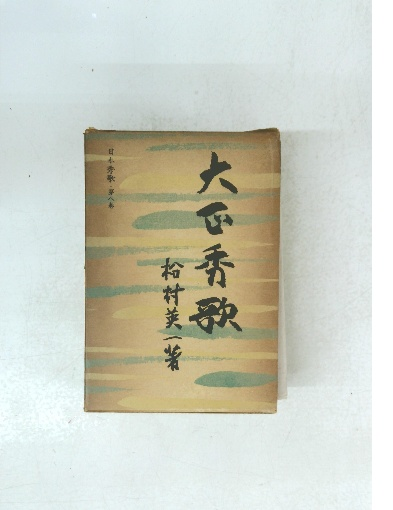 大正秀歌
松村英一著
日本秀歌・第八巻